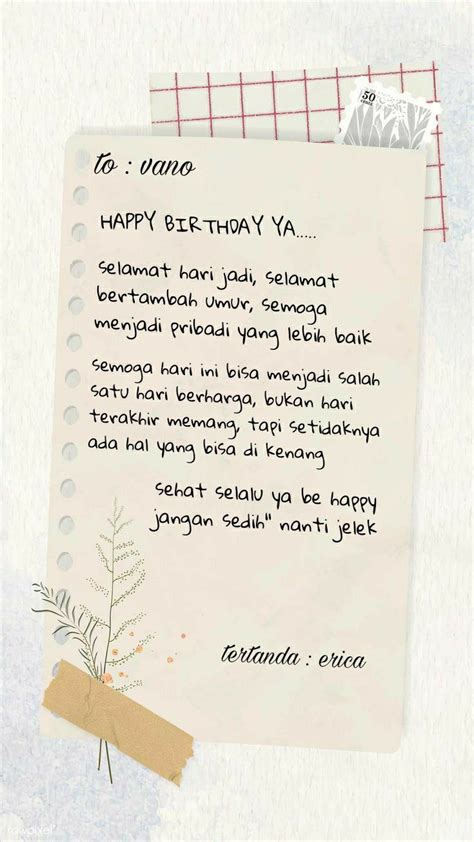 50
to : vano
HAPPY BIRTHDAY YA.....
selamat hari jadi, selamat
bertambah umur, semoga
menjadi pribadi yang lebih baik
semoga hari ini bisa menjadi salah
satu hari berharga, bukan hari
terakhir memang, tapi setidaknya
ada hal yang bisa di kenang
sehat selalu ya be happy
jangan sedih" nanti jelek
tertanda : erica
rawpixel